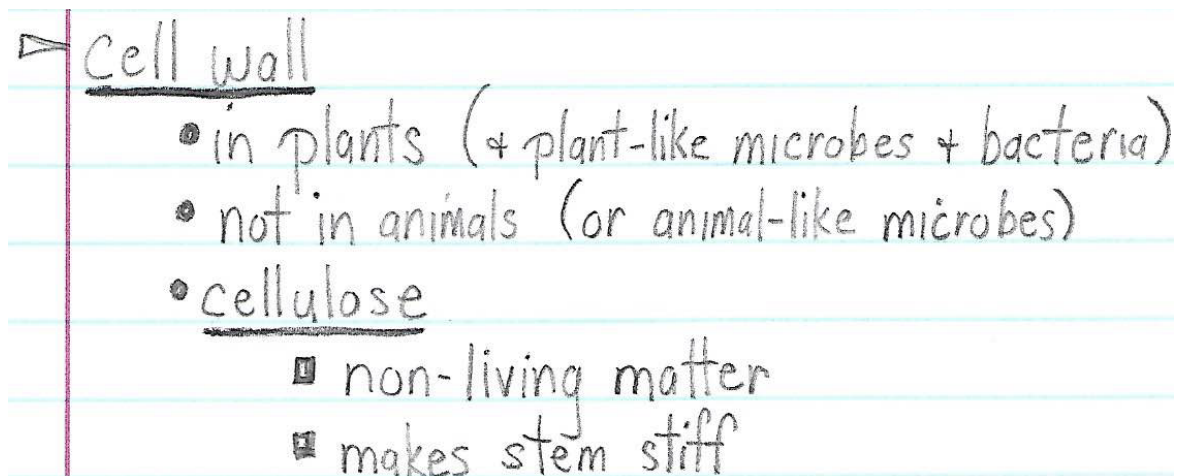 cell wall
• in plants (+ plant-like microbes + bacteria)
• not in animals (or animal-like microbes)
• cellulose
▪ non-living matter
▪ makes stem stiff